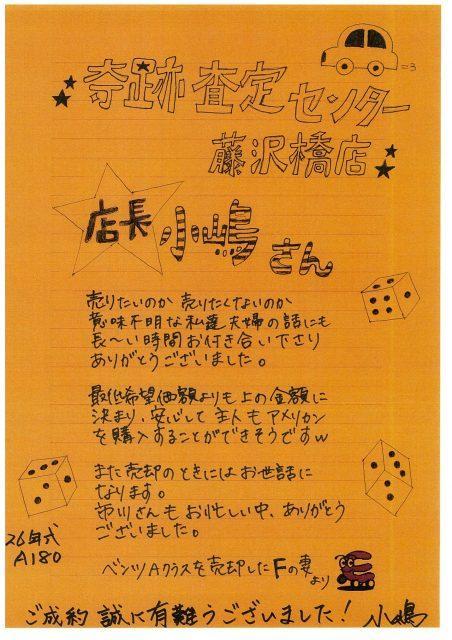 奇跡査定センター
藤沢橋店
店長 小嶋さん
売りたいのか 売りたくないのか
意味不明な私達夫婦の話にも
長～い時間お付き合い下さり
ありがとうございました。
最低希望価額よりも上の金額に
決まり、安心して主人もアメリカン
を購入することができそうですw
また売却のときにはお世話に
なります。
市川さんもお忙しい中、ありがとう
ございました。
26年式
A180
ベンツAクラスを売却したFの妻
より
ご成約 誠に有難うございました! 小嶋